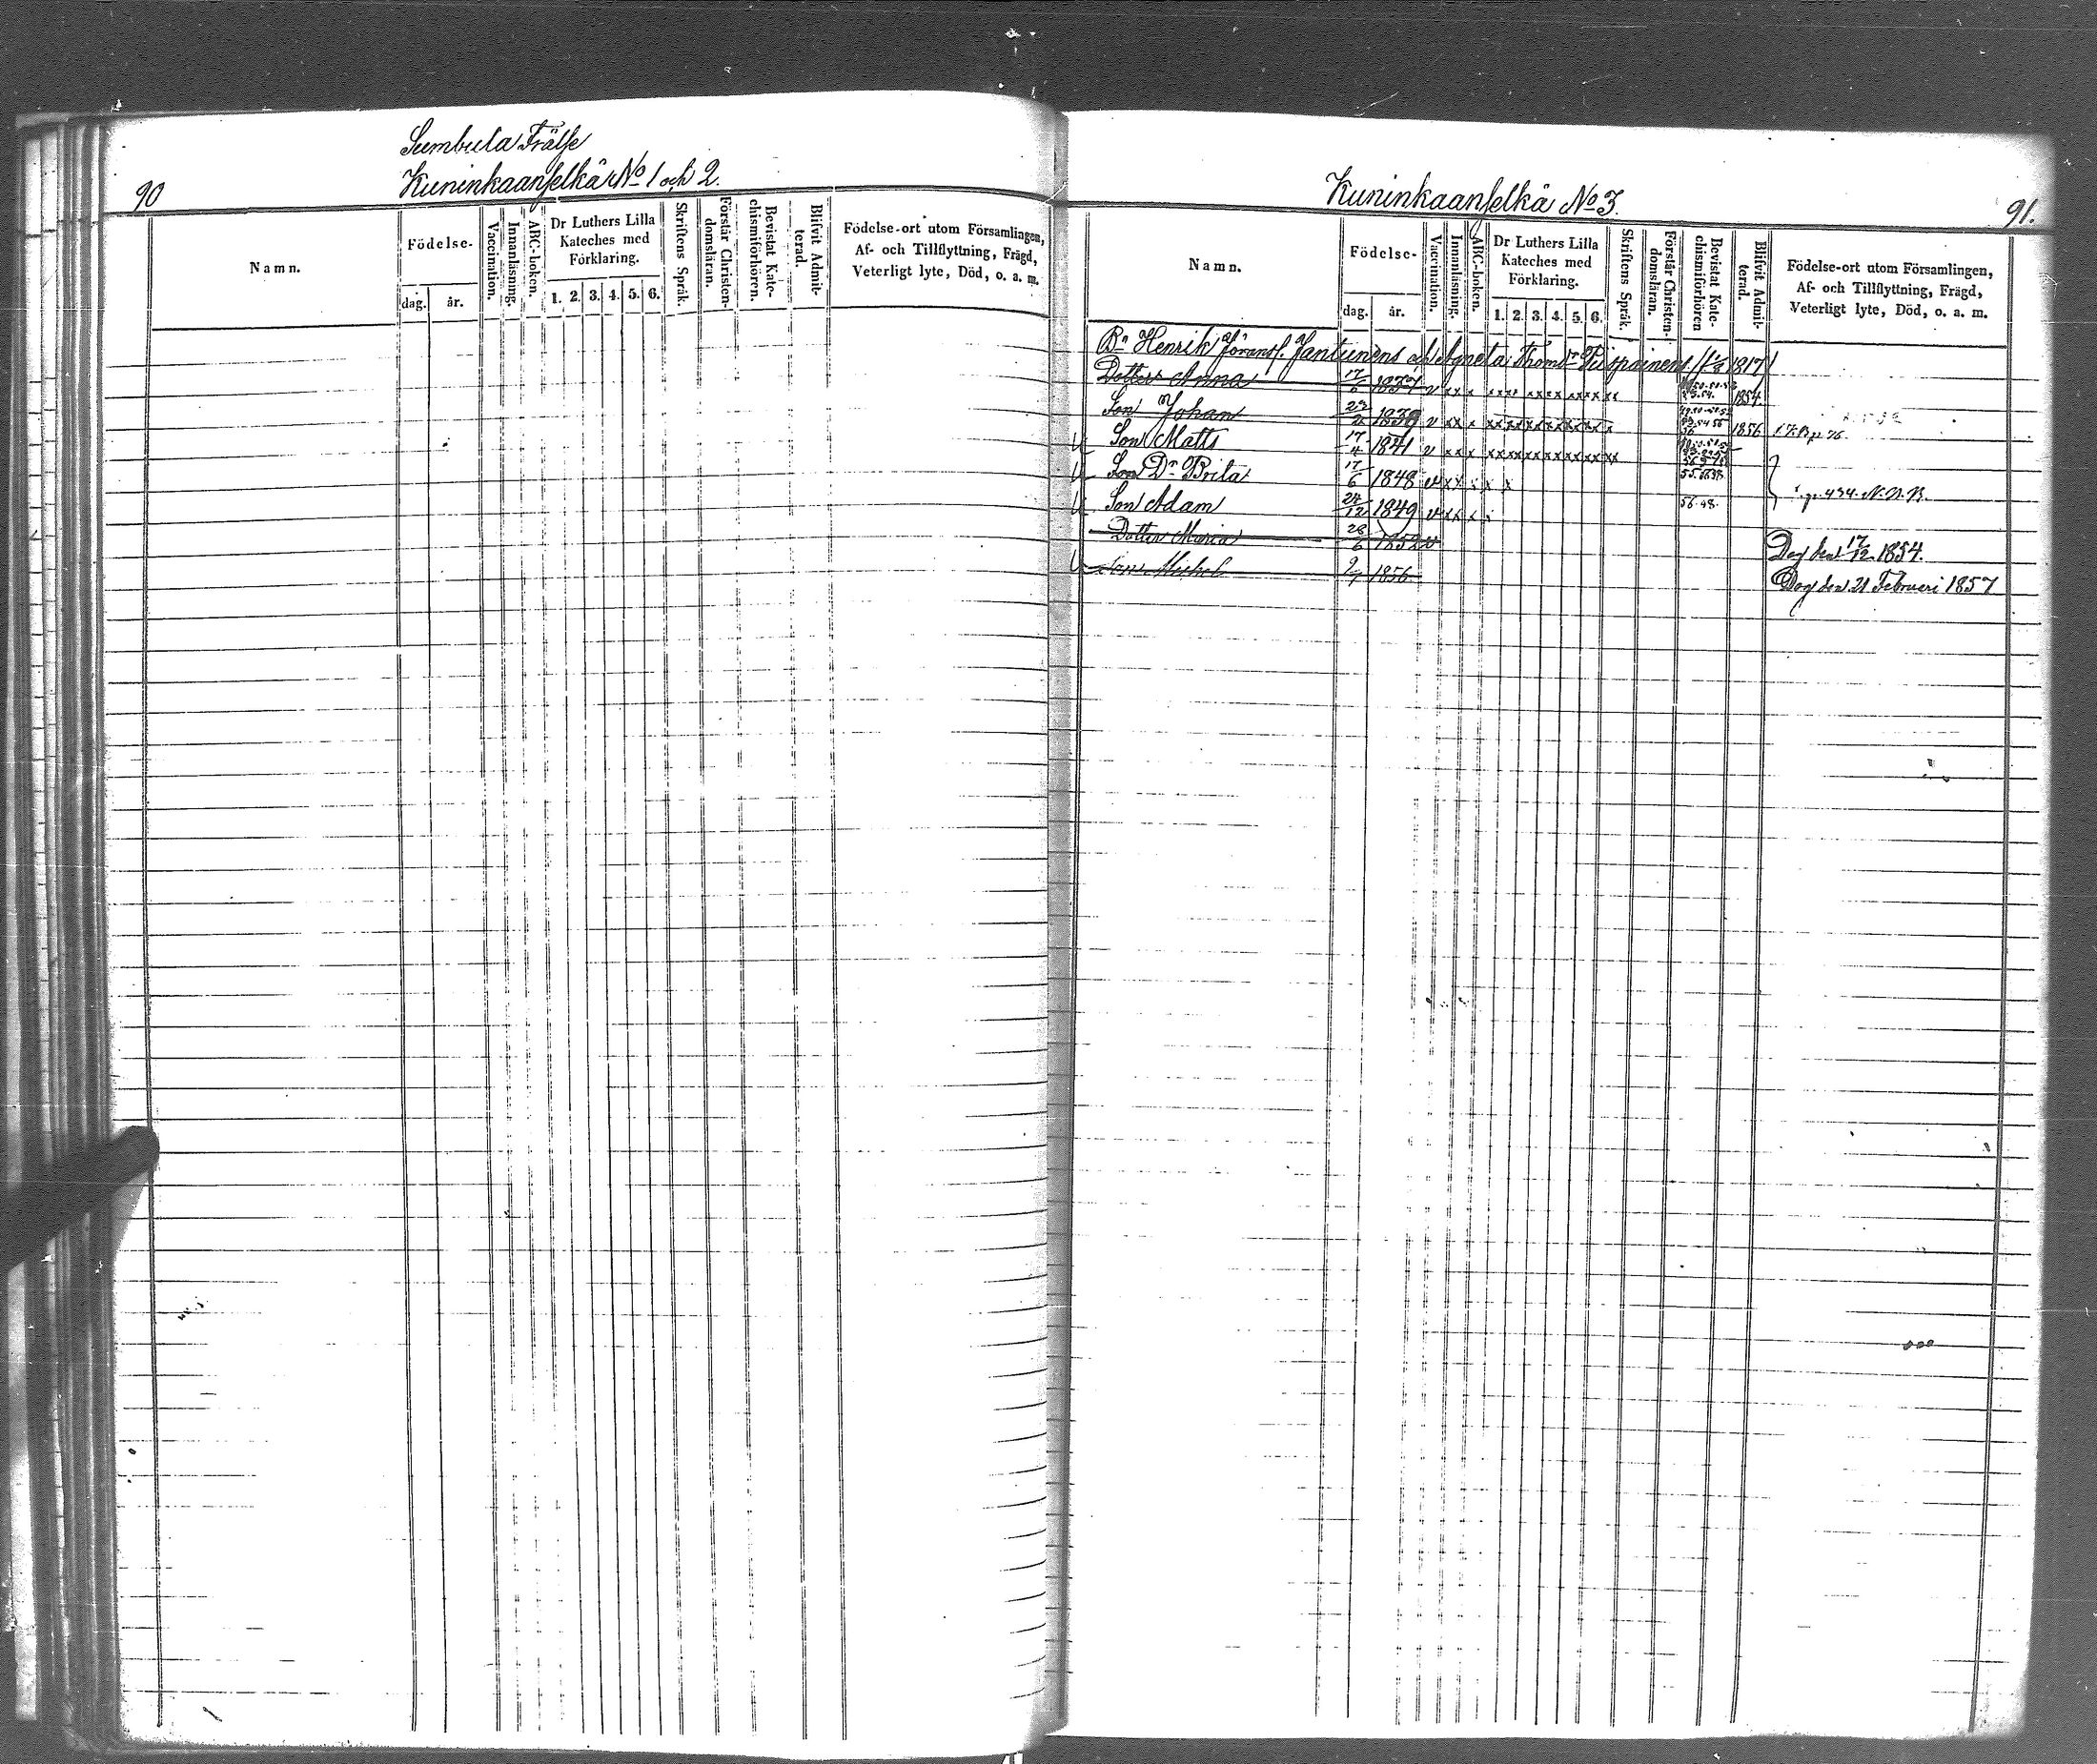 90
Sumbula Frälse
Kuninkaanselkä No 1 och 2.
Namn.
Födelse-
dag. år.
Vaccination.
Innanläsning.
ABC-boken.
Dr Luthers Lilla Kateches med Förklaring.
1. 2. 3. 4. 5. 6.
Skriftens Språk.
Förstår Christendomsläran.
Bevistat Katechismiförhören.
Blifvit Admitterad.
Födelse-ort utom Församlingen,
Af- och Tillflyttning, Frägd,
Veterligt lyte, Död, o. a. m.
Kuninkaanselkä No 3.
91.
Namn.
Födelse-
dag. år.
Vaccination.
Innanläsning.
ABC-boken.
Dr Luthers Lilla Kateches med Förklaring.
1. 2. 3. 4. 5. 6.
Skriftens Språk.
Förstår Christendomsläran.
Bevistat Katechismiförhören
Blifvit Admitterad.
Födelse-ort utom Församlingen,
Af- och Tillflyttning, Frägd,
Veterligt lyte, Död, o. a. m.
Bn Henrik Göranss. Jantunens och Agneta Thomsdr Piispainens 1817
Dotter Anna 17/6 1837 v xx x 1854
Son Johan 1839 v xx x 1856
Son Matts 17/4 1841 v xx x
Son Dr Brita 17/6 1848 v xx x x x
Son Adam 24/12 1849 v xx x x 56. p. 434. N. B.
Dotter Maria 28/6 1852 v Dog den 17/12 1854.
Son Michel 9/7 1856 Dog den 21 Februari 1857